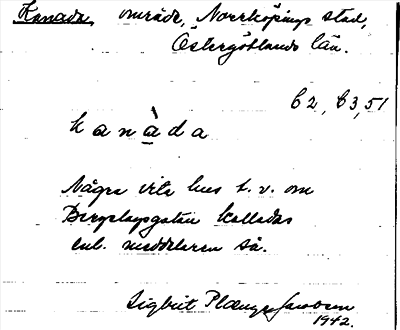 Kanada område, Norrköpings stad,
Östergötlands län.
C2, C3, 51
kanàda
Några vita hus t. v. om
Bergslagsgatan kallades
enl. meddelaren så.
Sigbrit Plænge Jacobson
1942.